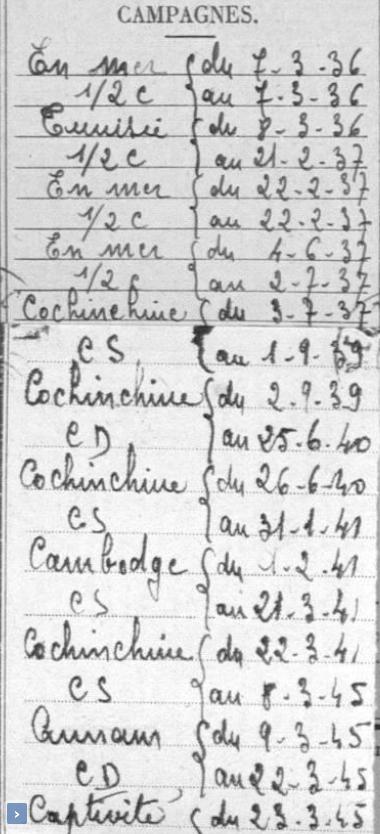 CAMPAGNES.
En mer { du 7-3-36
1/2 C au 7-3-36
Tunisie { du 8-3-36
1/2 C au 21-2-37
En mer { du 22-2-37
1/2 C au 22-2-37
En mer { du 4-6-37
1/2 C au 2-7-37
Cochinchine { du 3-7-37
CS au 1-9-39
Cochinchine { du 2-9-39
CD au 25-6-40
Cochinchine { du 26-6-40
CS au 31-1-41
Cambodge { du 1-2-41
CS au 21-3-41
Cochinchine { du 22-3-41
CS au 8-3-45
Annam { du 9-3-45
CD au 22-3-45
Captivité { du 23-3-45